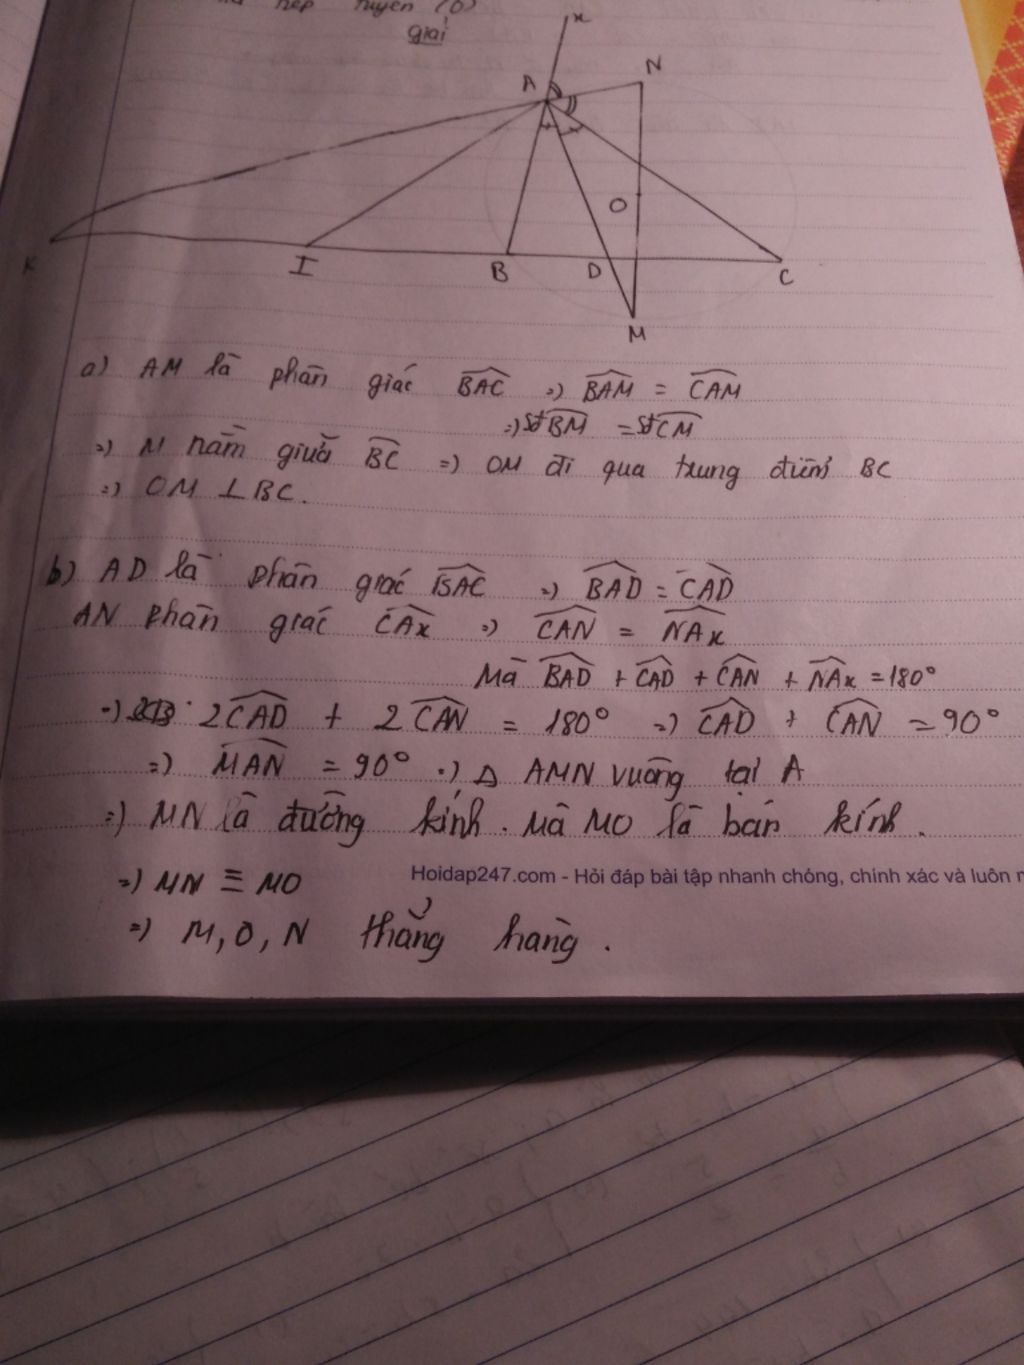 nếp tuyến (O)
giải
x
N
A
O
K
I
B
D
C
M
a) AM là phân giác BAC => BAM = CAM
=> sđ BM = sđ CM
=> M nằm giữa BC => OM đi qua trung điểm BC
=> OM ⊥ BC.
b) AD là phân giác BAC => BAD = CAD
AN phân giác CAx => CAN = NAx
Mà BAD + CAD + CAN + NAx = 180°
=> 2CAD + 2CAN = 180° => CAD + CAN = 90°
=> MAN = 90° => Δ AMN vuông tại A
=> MN là đường kính. Mà MO là bán kính.
=> MN ≡ MO
Hoidap247.com - Hỏi đáp bài tập nhanh chóng, chính xác và luôn
=> M, O, N thẳng hàng.